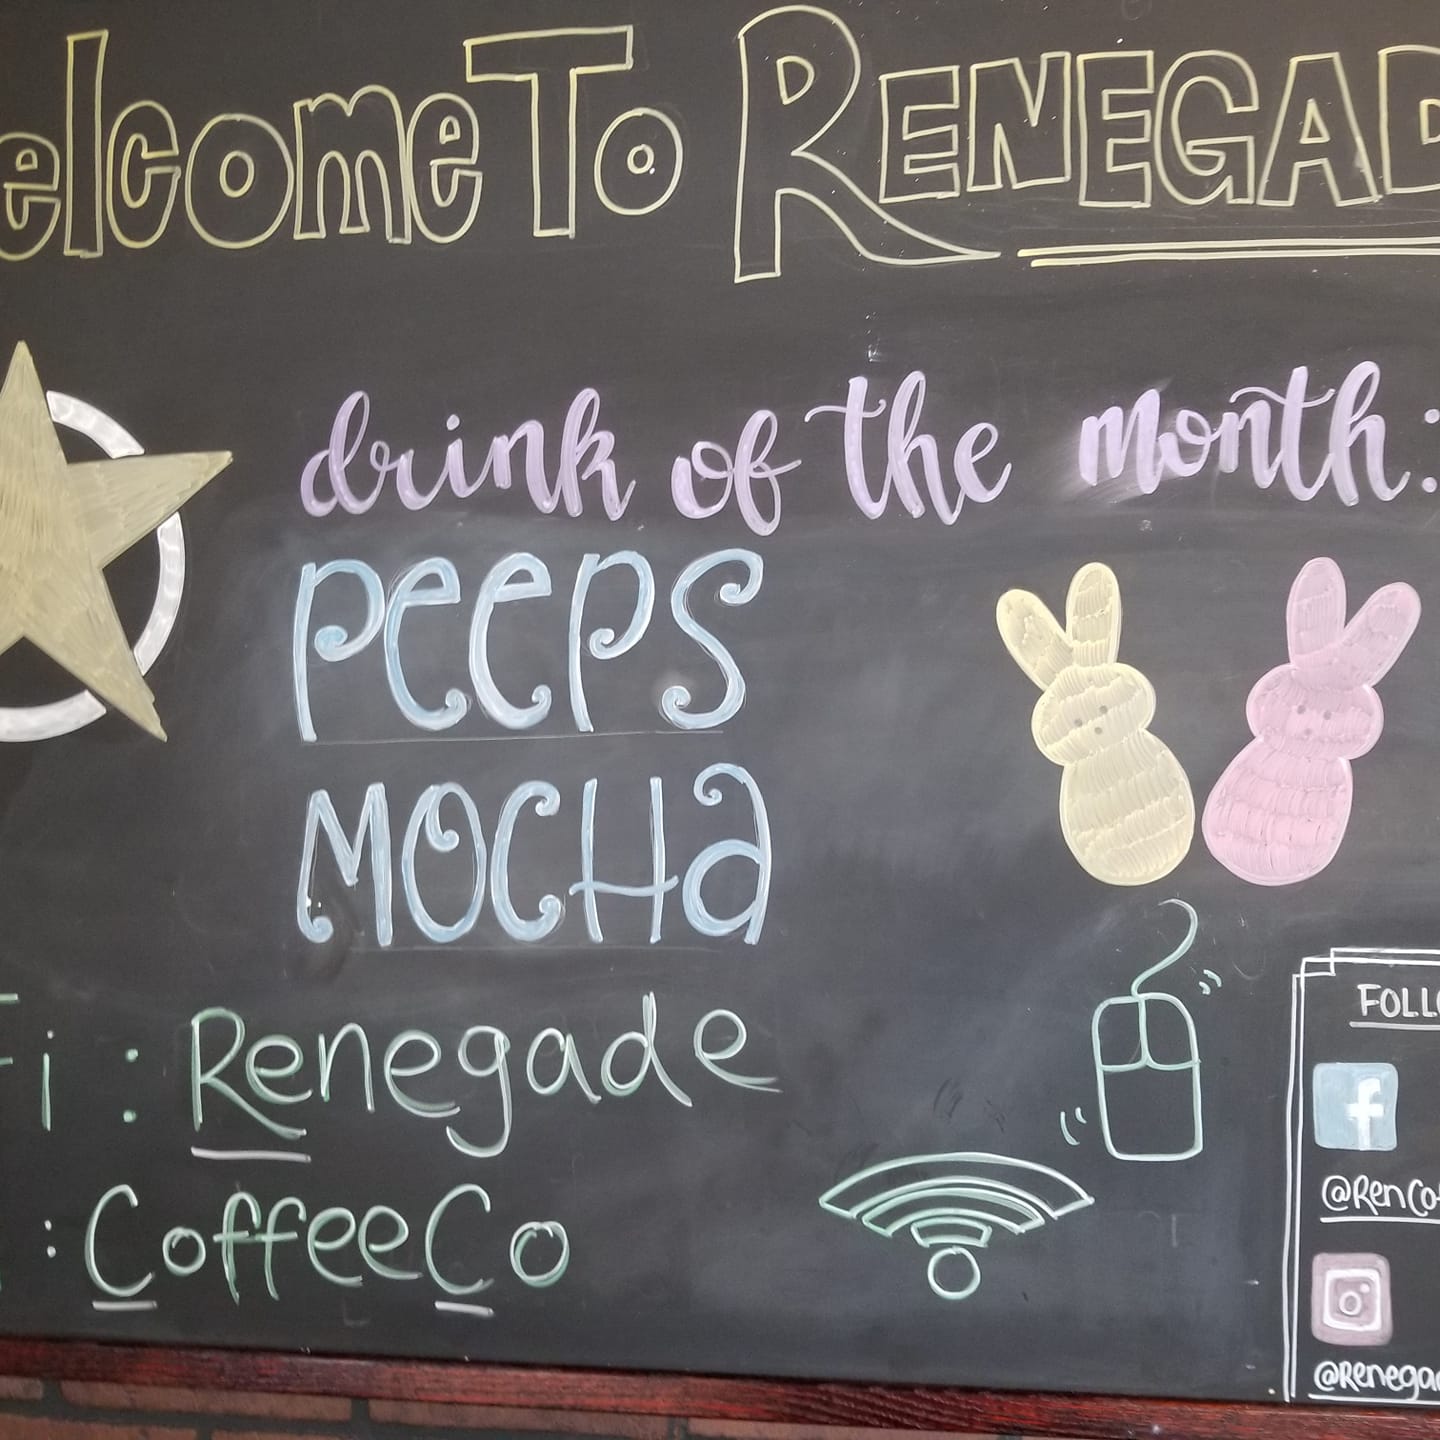 elcome To RENEGAD
drink of the month:
PEEPS
MOCHA
Fi : Renegade
: CoffeeCo
FOLLO
f
@RenCof
@Renegad